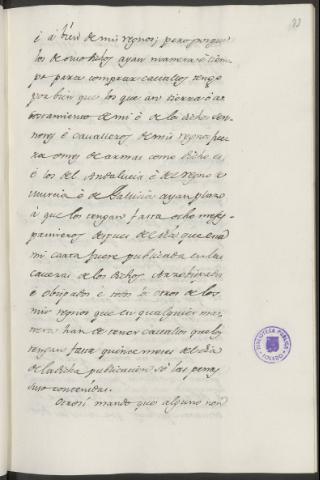 é á bien de mis regnos; pero porque
los de suso dichos ayan manera é tiem-
po para comprar cavallos tengo
por bien que los que an tierra ó a
costamiento de mi ó de los dichos sen-
nores é cavalleros de mis regnos pa
ra omes de armas como dicho es
é los del Andalucia é del regno de
Murcia é de Galicia ayan plazo
á que los tengan fasta ocho meses
primeros despues del dia que esta
mi carta fuere publicada en las
caveças de los dichos Arzobispados
é Obispados é todos los otros de los
mis regnos que en qualquier ma-
nera han de tener cavallos que los
tengan fasta quince meses del dia
de la dicha publicacion só las penas
suso contenidas.
Otrosí mando que alguno non
BIBLIOTECA PUBLICA
TOLEDO